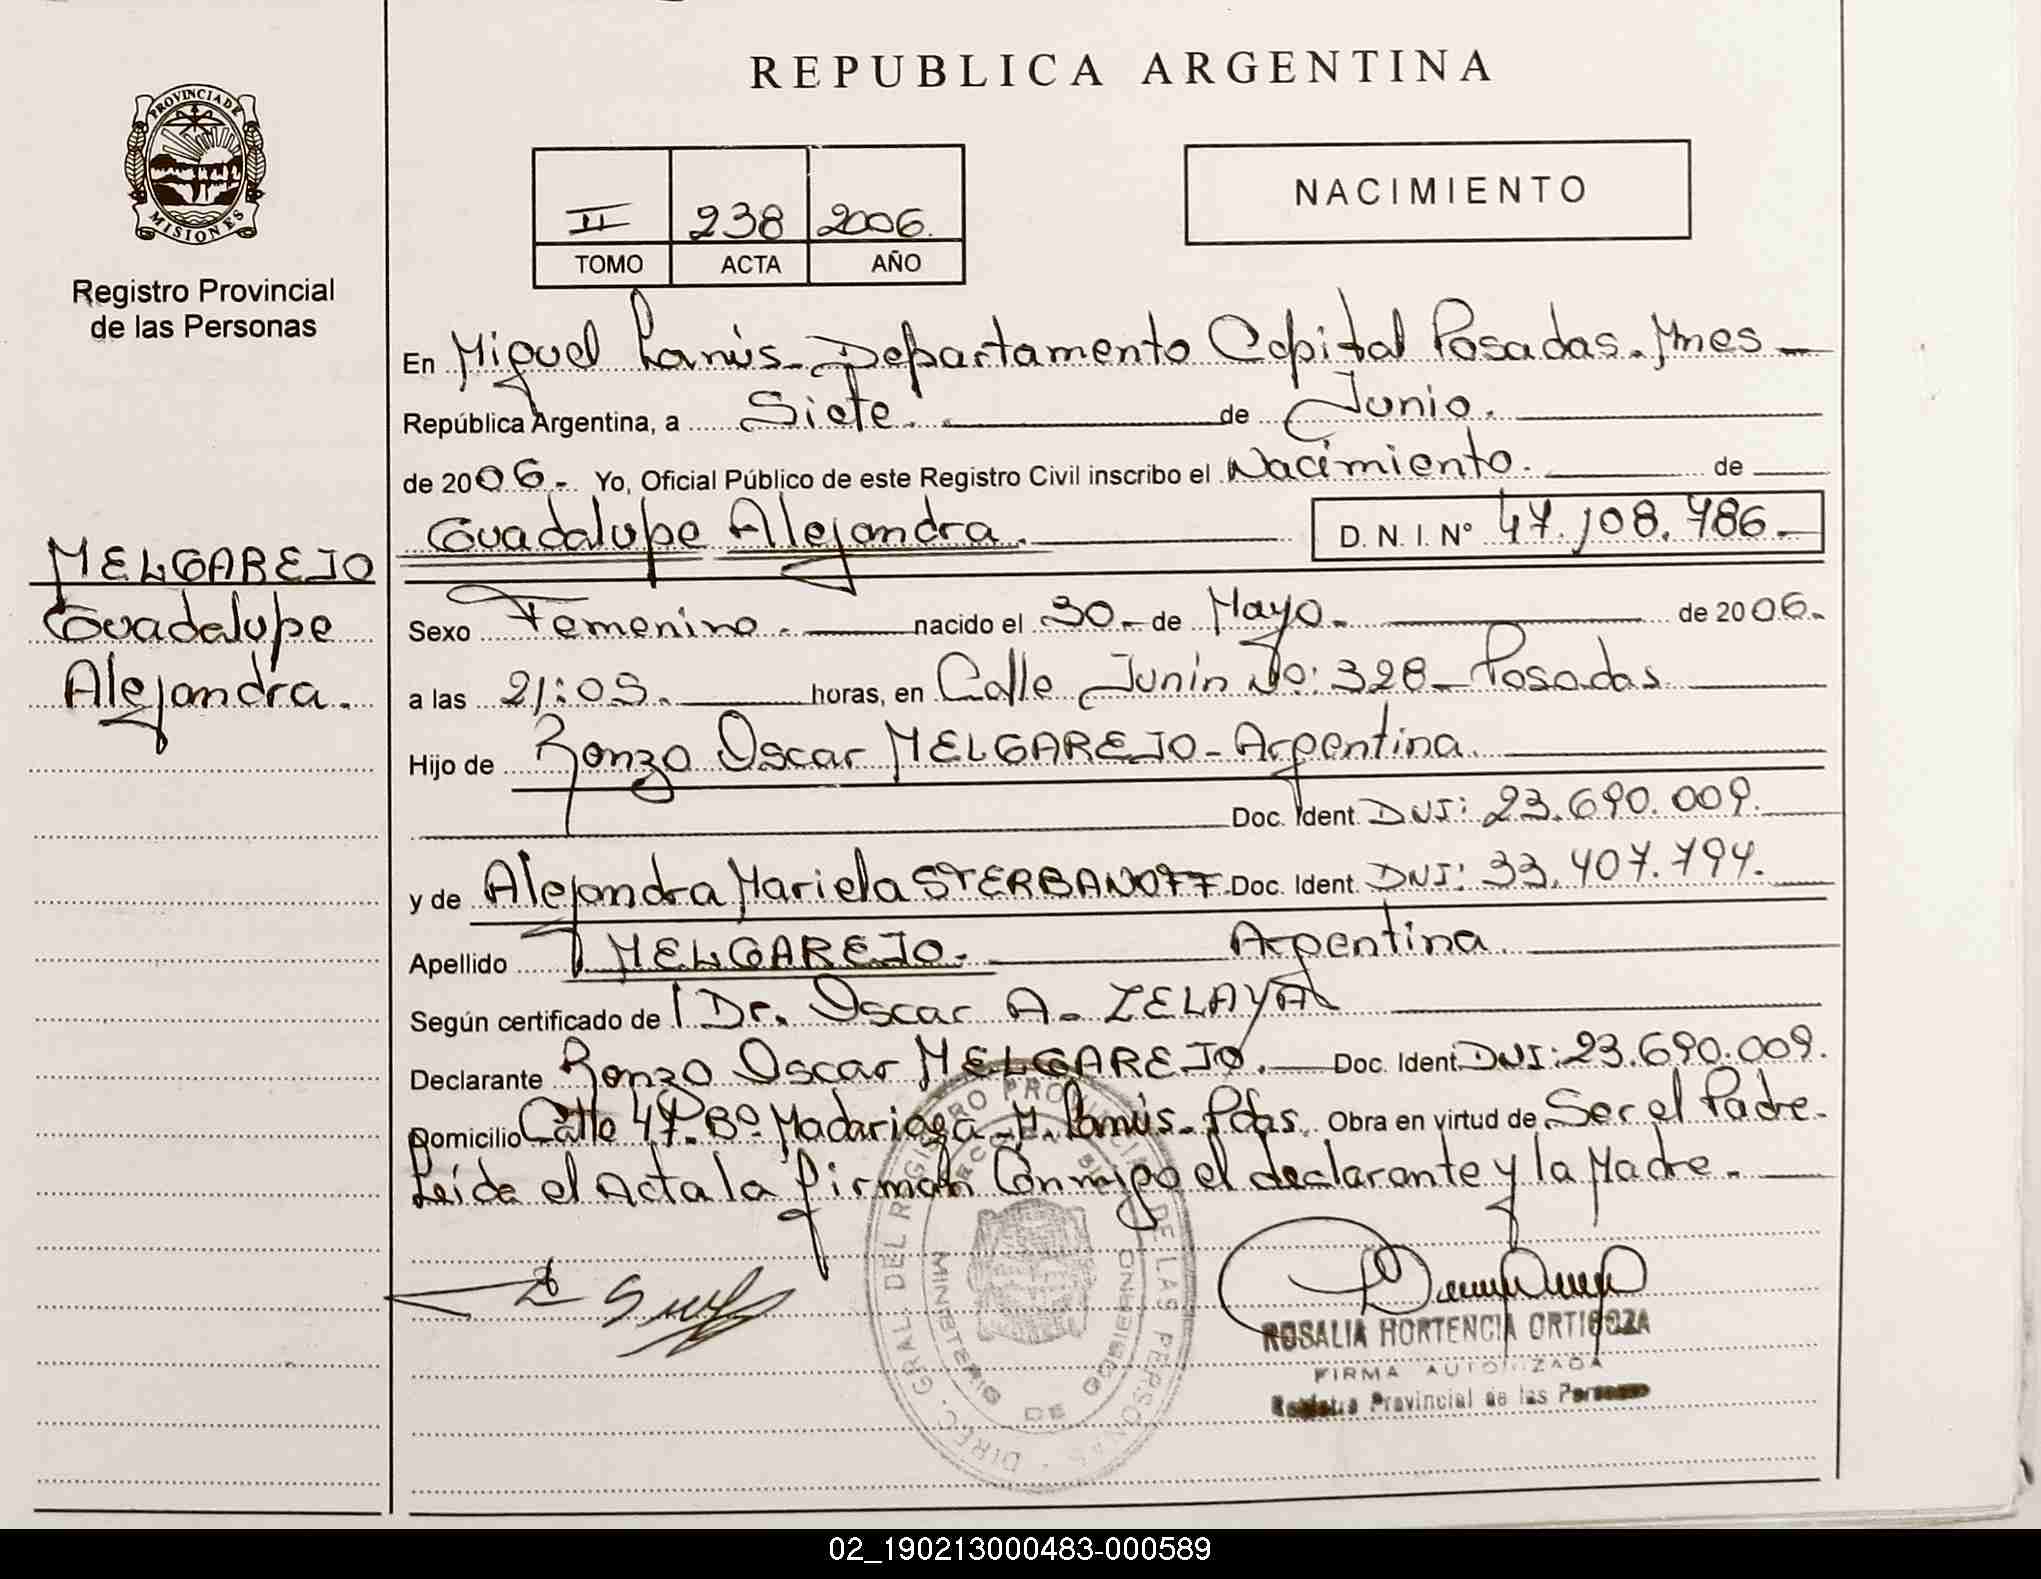 REPUBLICA ARGENTINA
PROVINCIA DE MISIONES
Registro Provincial
de las Personas
II 238 2006.
TOMO ACTA AÑO
NACIMIENTO
MELGAREJO
Guadalupe
Alejandra.
En Miguel Lanús - Departamento Capital Posadas. Mnes -
República Argentina, a Siete. de Junio.
de 2006.- Yo, Oficial Público de este Registro Civil inscribo el Nacimiento. de
Guadalupe Alejandra. D. N. I. Nº 47.108.786.-
Sexo Femenino. nacido el 30 - de Mayo. de 2006.
a las 21:05. horas, en Calle Junín No: 328 - Posadas
Hijo de Ronzo Oscar MELGAREJO - Argentina
Doc. Ident. DNI: 23.690.009.
y de Alejandra Mariela STERBANOFF Doc. Ident. DNI: 33.407.794.
Apellido MELGAREJO. Argentina
Según certificado de Dr. Oscar A. ZELAYA
Declarante Ronzo Oscar MELGAREJO. Doc. Ident. DNI: 23.690.009.
Domicilio Calle 47 - Bº. Madariaga - M. Lanús - Pdas. Obra en virtud de Ser el Padre.
Leída el Acta la firman Conmigo el declarante y la Madre.
DIREC. GRAL. DEL REGISTRO PROVINCIAL DE LAS PERSONAS
MINISTERIO DE GOBIERNO
ROSALIA HORTENCIA ORTIGOZA
FIRMA AUTORIZADA
Registro Provincial de las Personas
02_190213000483-000589